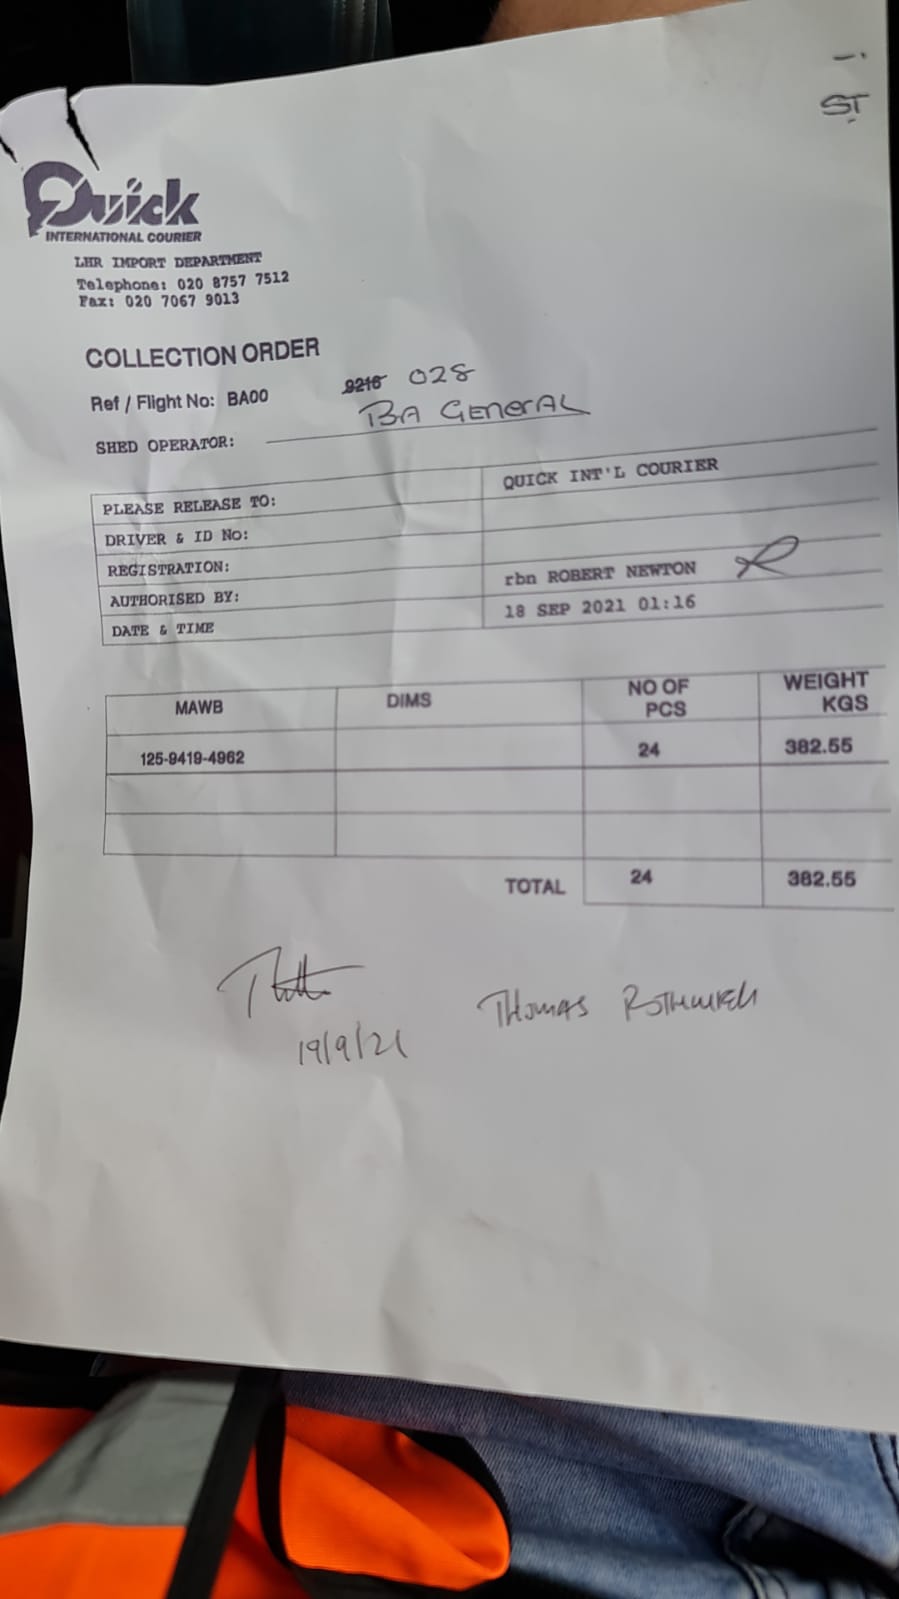 ST
Quick
INTERNATIONAL COURIER
LHR IMPORT DEPARTMENT
Telephone: 020 8757 7512
Fax: 020 7067 9013
COLLECTION ORDER
Ref / Flight No: BA00 9216 028
SHED OPERATOR: BA GENERAL
PLEASE RELEASE TO: QUICK INT'L COURIER
DRIVER & ID No:
REGISTRATION:
AUTHORISED BY: rbn ROBERT NEWTON
DATE & TIME 18 SEP 2021 01:16
MAWB DIMS NO OF PCS WEIGHT KGS
125-9419-4962 24 382.55
TOTAL 24 382.55
THOMAS
19/9/21